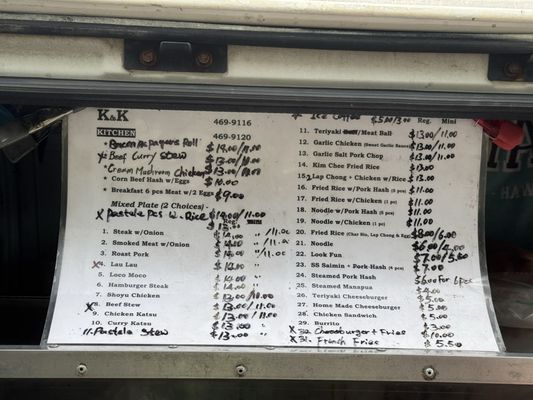 K&K
KITCHEN
469-9116
469-9120
Roll $19.00/11.00
x Beef Curry Stew $13.00/10.00
Cream Mushroom Chicken $13.00/10.00
Corn Beef Hash w/Eggs $10.00
Breakfast 6 pcs Meat w/2 Eggs $9.00
Mixed Plate (2 Choices)-
x Pastele Pcs w. Rice $14.00/11.00
Reg.
1. Steak w/Onion /11.00
2. Smoked Meat w/Onion /11.00
3. Roast Pork /11.00
x4. Lau Lau $14.00
5. Loco Moco $14.00
6. Hamburger Steak $14.00
7. Shoyu Chicken $13.00/10.00
x8. Beef Stew $13.00/11.00
9. Chicken Katsu $13.00/11.00
10. Curry Katsu $13.00
11. Pastele Stew $13.00
Ice Coffee $5.00/3.00 Reg. Mini
11. Teriyaki Meat Ball $13.00/11.00
12. Garlic Chicken (Sweet Garlic Sauce) $13.00/11.00
13. Garlic Salt Pork Chop $13.00/11.00
14. Kim Chee Fried Rice $13.00
15. Lap Chong + Chicken w/Rice $13.00
16. Fried Rice w/Pork Hash (5 pcs) $11.00
17. Fried Rice w/Chicken (1 pc) $11.00
18. Noodle w/Pork Hash (5 pcs) $11.00
19. Noodle w/Chicken (1 pc) $11.00
20. Fried Rice (Char Siu, Lap Chong & Egg) $8.00/6.00
21. Noodle $6.00/4.00
22. Look Fun $7.00/5.50
23. SS Saimin + Pork Hash $7.00
24. Steamed Pork Hash $6.00 for 6pcs
25. Steamed Manapua $4.00
26. Teriyaki Cheeseburger $5.00
27. Home Made Cheeseburger $5.00
28. Chicken Sandwich $5.00
29. Burrito $3.00
x 30. Cheeseburger + Fries $10.00
x 31. French Fries $5.50